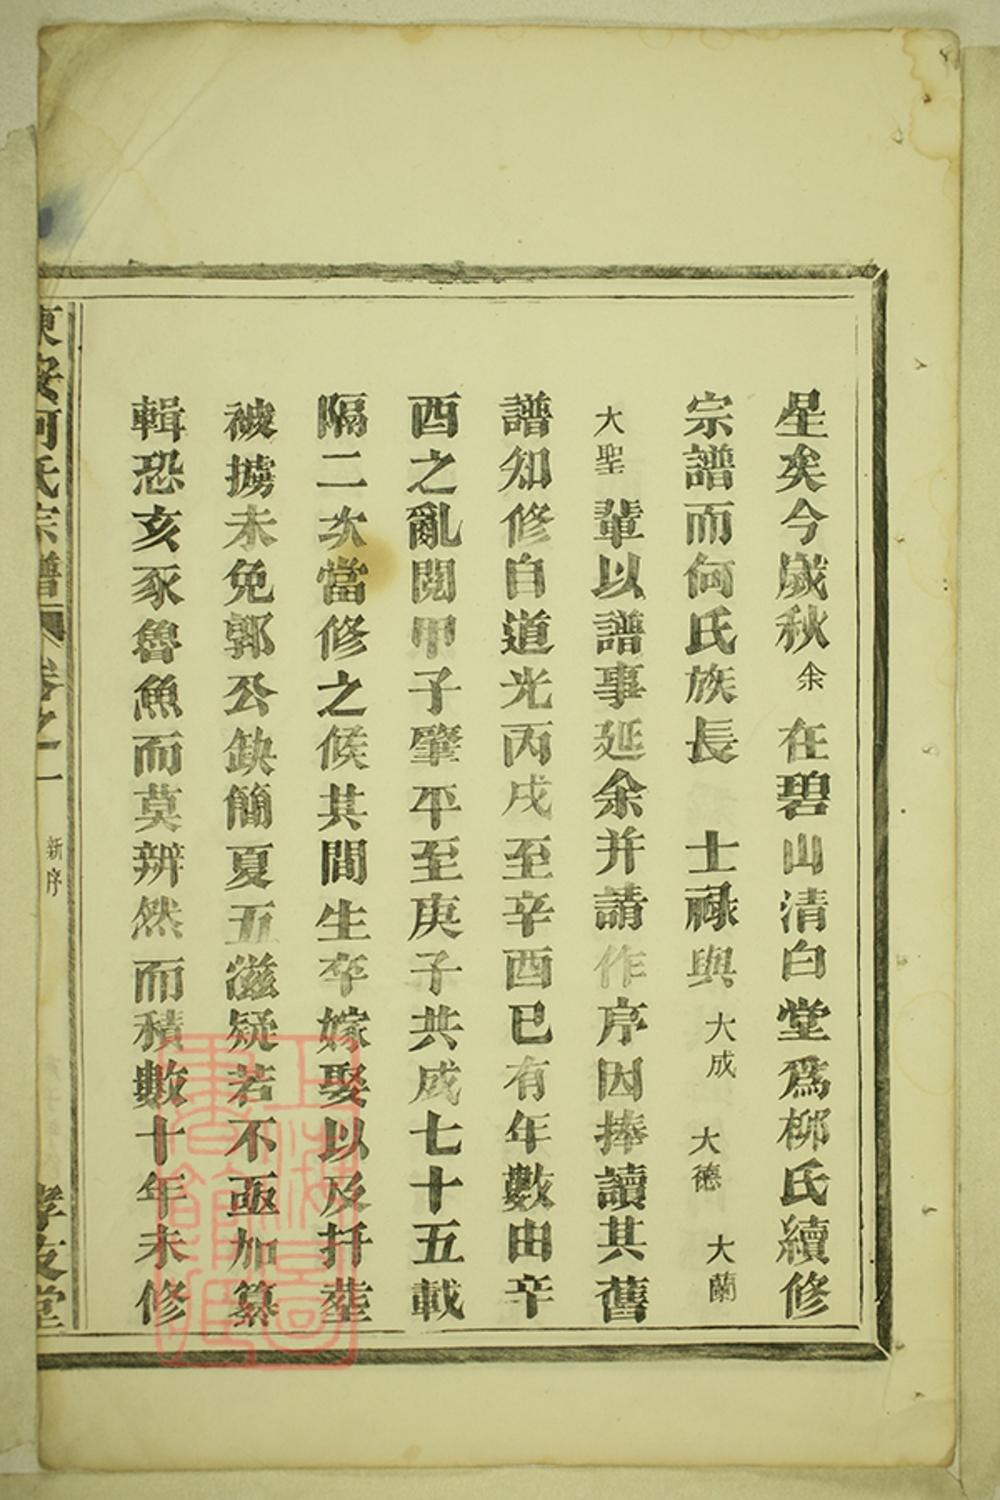 星矣今歲秋余在碧山清白堂爲柳氏續修
宗譜而何氏族長 士祿與大成 大德 大蘭
大聖輩以譜事延余并請作序因捧讀其舊
譜知修自道光丙戌至辛酉已有年數由辛
酉之亂閱甲子肇平至庚子共成七十五載
隔二次當修之候其間生卒嫁娶以及扦塟
襶摴未免郭公缺簡夏五滋疑若不亟加纂
輯恐亥豕魯魚而莫辨然而積數十年未修
東安何氏宗譜 卷之一 新序 孝友堂
上海圖書館藏